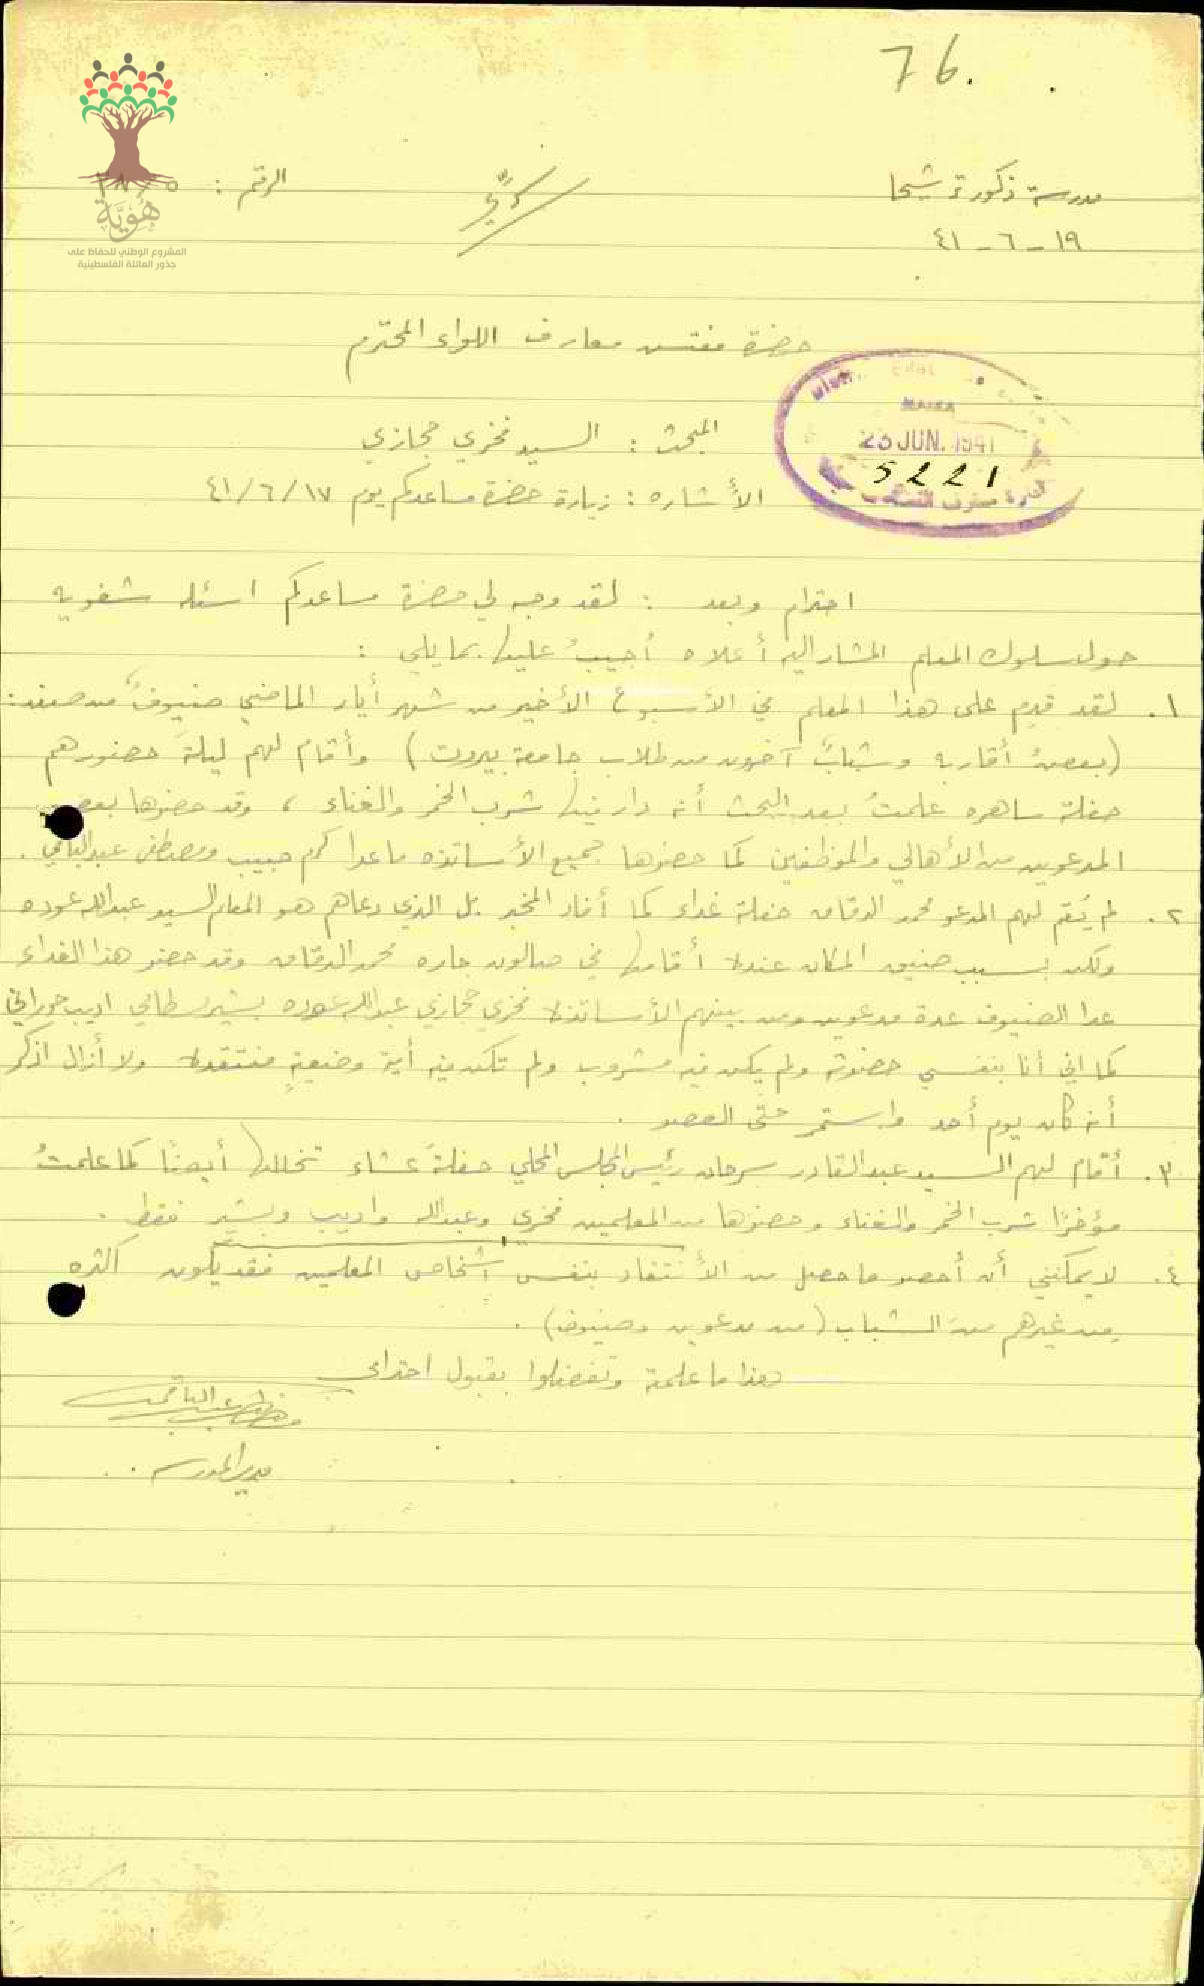 76.
مدرسة ذكور ترشيحا
الرقم :
سرّي
١٩ - ٦ - ٤١
هُوِيَّة
المشروع الوطني للحفاظ على
جذور العائلة الفلسطينية
حضرة مفتش معارف اللواء المحترم
HAIFA
23 JUN. 1941
5221
المبحث : السيد فخري حجازي
الأشاره : زيارة حضرة مساعدكم يوم ٤١/٦/١٧
احترام وبعد : لقد وجه لي حضرة مساعدكم اسئله شفويه
حول سلوك المعلم المشار اليه أعلاه أُجيبُ عليها بما يلي :
١. لقد قدِم على هذا المعلم في الأسبوع الأخير من شهر أيار الماضي ضيوفٌ من صفد:
(بعضُ أقاربه وشبابٌ آخرون من طلاب جامعة بيروت) وأقام لهم ليلةَ حضورهم
حفلة ساهره علمتُ بعد البحث أنه دار فيها شرب الخمر والغناء ، وقد حضرها بعض
المدعوين من الأهالي والموظفين كما حضرها جميع الأساتذه ما عدا كرم حبيب ومصطفى عبد الباقي .
٢. لم يُقم لهم المدعو محمد الدقاق حفلة غداء كما أفاد المخبر بل الذي دعاهم هو المعلم السيد عبدالله عوده
ولكن بسبب ضيق المكان عنده أقامها في صالون جاره محمد الدقاق وقد حضر هذا الغداء
عدا الضيوف عدة مدعوين ومن بينهم الأساتذه فخري حجازي عبدالله عوده بشير سطالي اديب حوراني
كما اني أنا بنفسي حضرته ولم يكن فيه مشروب ولم تكن فيه أية وضيعةٍ منتقده ولا أزال اذكر
أنه كان يوم أحد واستمر حتى العصر .
٣. أقام لهم السيد عبد القادر سرحان رئيس المجلس المحلي حفلةَ عشاء تخللها أيضًا كما علمتُ
مؤخرًا شرب الخمر والغناء وحضرها من المعلمين فخري وعبدالله واديب وبشير فقط .
٤. لا يمكنني أن أحصر ما حصل من الأنتقاد بنفس اشخاص المعلمين فقد يكون اكثره
من غيرهم من الشباب (من مدعوين وضيوف) .
هذا ما علمته وتفضلوا بقبول احترامي
مصطفى عبد الباقي
مدير المدرسه .